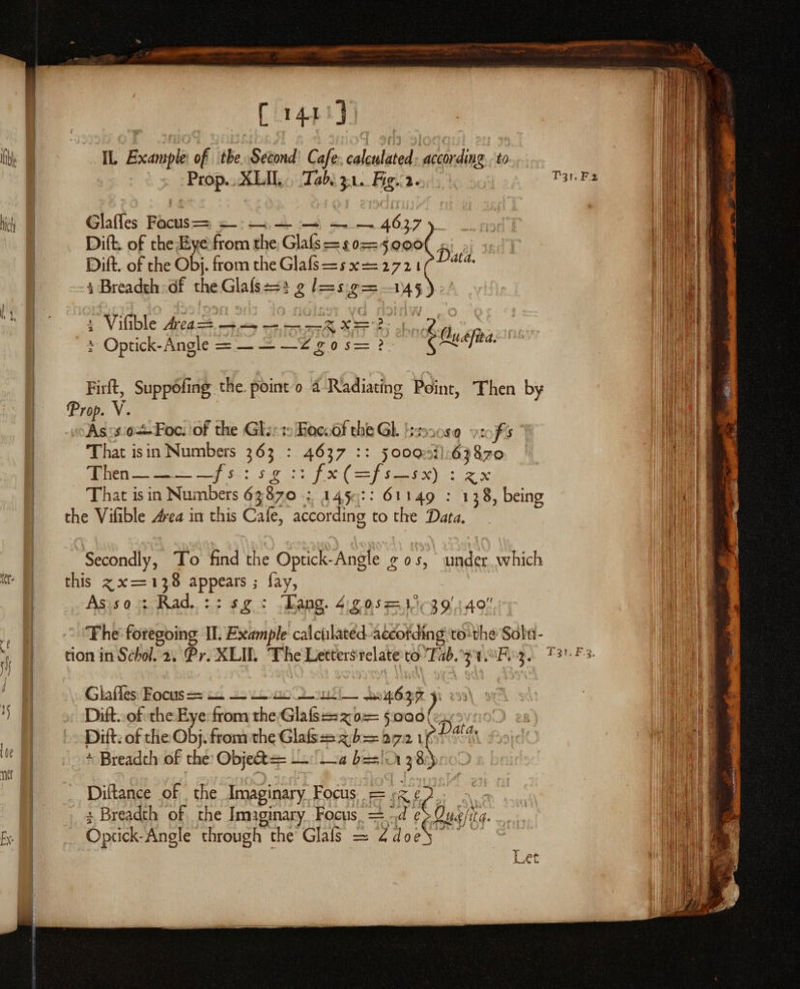 [ 141 ]
II. Example of the Second Case, calculated according to
Prop. XLII. Tab. 31. Fig. 2.
T31. F2
Glaſſes Focus = — — — — — — 4637
Diſt. of the Eye from the Glaſs = s o = 5000
Diſt. of the Obj. from the Glaſs = s x = 2721
Data.
½ Breadth of the Glaſs = ½ g l = s g = 145
½ Viſible Area = — — — — — z x = ?
½ Optick-Angle = — — — ∠ g o s = ?
Quæſita.
Firſt, Suppoſing the point o a Radiating Point, Then by
Prop. V.
As s o − Foc. of the Gl. : Foc. of the Gl. :: o s : f s
That is in Numbers 363 : 4637 :: 5000 : 63870
Then — — — — f s : s g :: f x (= f s − s x) : z x
That is in Numbers 63870 : 145 :: 61149 : 138, being
the Viſible Area in this Caſe, according to the Data.
Secondly, To find the Optick-Angle g o s, under which
this z x = 138 appears ; ſay,
As s o : Rad. :: s g : Tang. ∠ g o s = 1° 39' 40"
The foregoing II. Example calculated according to the Solu-
tion in Schol. 2. Pr. XLII. The Letters relate to Tab. 31. F. 3.
T31. F3.
Glaſſes Focus = — — — — — — 4637
Diſt. of the Eye from the Glaſs = z o = 5000
Diſt. of the Obj. from the Glaſs = z b = 2721
Data.
½ Breadth of the Object = — — a b = 138
Diſtance of the Imaginary Focus = z e
½ Breadth of the Imaginary Focus = d e
Quæſita.
Optick-Angle through the Glaſs = ∠ d o e
Let